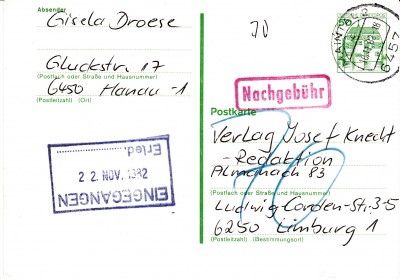 Absender
Gisela Droese
Gluckstr. 17
(Postfach oder Straße und Hausnummer)
6450 Hanau-1
(Postleitzahl) (Ort)
EINGEGANGEN
22. NOV. 1982
Erled.
70
50
MAINTAL
6457
Nachgebühr
Postkarte
Verlag Josef Knecht
-Redaktion
Almanach 83
70
(Postfach oder Straße und Hausnummer)
Ludwig-Corden-Str. 3-5
6250 Limburg 1
(Postleitzahl) (Bestimmungsort)